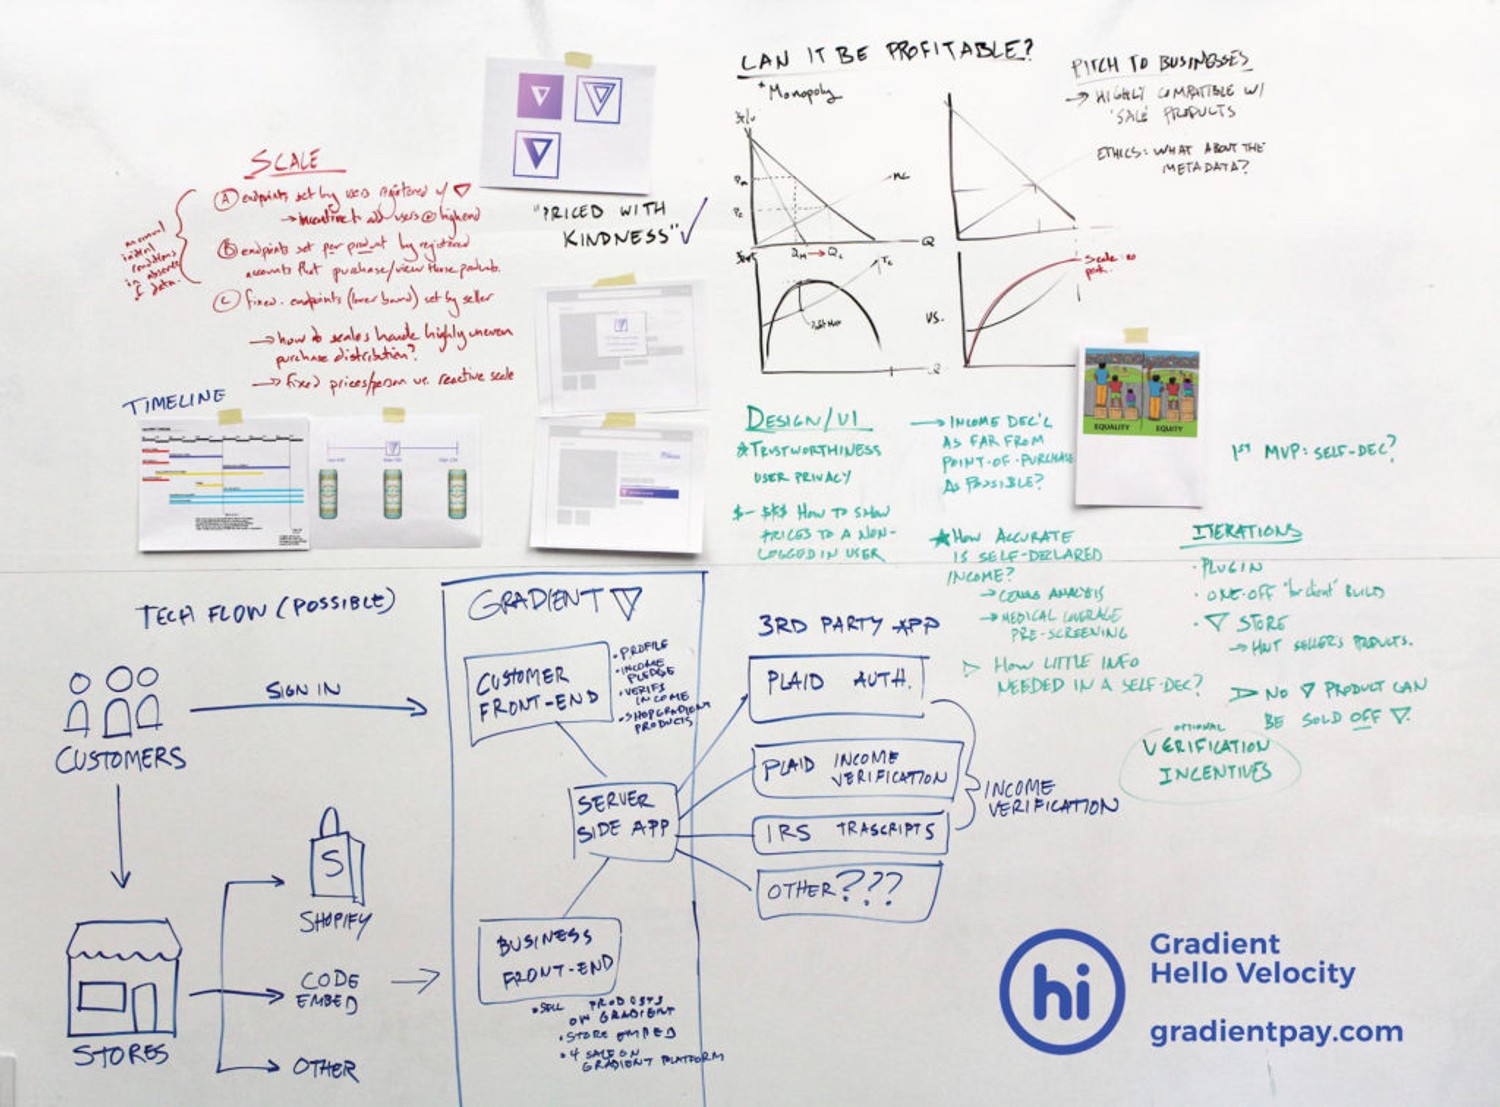 CAN IT BE PROFITABLE?
* Monopoly
PITCH TO BUSINESSES
→ HIGHLY COMPATIBLE W/
'SALE' PRODUCTS
ETHICS: WHAT ABOUT THE
METADATA?
MC
Pm
Pc
Q
Qm → Qc
TC
VS.
Q
Scale: no
SCALE
A endpoints set by users registered w/ ▽
→ incentive to add users @ high end
B endpoints set per product by registered
accounts that purchase/view those products.
C fixed endpoints (lower bound) set by seller
→ how do scales handle highly uneven
purchase distribution?
→ fixed prices/person vs. reactive scale
conditions
in absence
of data.
"PRICED WITH
KINDNESS" ✓
TIMELINE
EQUALITY
EQUITY
DESIGN/UI
* TRUSTWORTHINESS
USER PRIVACY
$ - $$$ HOW TO SHOW
PRICES TO A NON-
LOGGED IN USER
→ INCOME DEC'L
AS FAR FROM
POINT-OF-PURCHASE
AS POSSIBLE?
★ HOW ACCURATE
IS SELF-DECLARED
INCOME?
→ ANALYSIS
→ MEDICAL COVERAGE
PRE-SCREENING
▷ HOW LITTLE INFO
NEEDED IN A SELF-DEC?
1ST MVP: SELF-DEC?
ITERATIONS
· PLUGIN
· ONE-OFF "for client" BUILD
· ▽ STORE
→ HOST SELLER'S PRODUCTS.
▷ NO ▽ PRODUCT CAN
BE SOLD OFF ▽.
OPTIONAL
VERIFICATION
INCENTIVES
TECH FLOW (POSSIBLE)
CUSTOMERS
SIGN IN
STORES
S
SHOPIFY
CODE
EMBED
OTHER
GRADIENT ▽
CUSTOMER
FRONT-END
· PROFILE
· INCOME
PLEDGE
· VERIFY
INCOME
· SHOP GRADIENT
PRODUCTS
SERVER
SIDE APP
BUSINESS
FRONT-END
· SELL PRODUCTS
ON GRADIENT
· STORE EMBED
· 4 SALE ON
GRADIENT PLATFORM
3RD PARTY APP
PLAID AUTH.
PLAID INCOME
VERIFICATION
IRS TRASCRIPTS
OTHER???
INCOME
VERIFICATION
hi
Gradient
Hello Velocity
gradientpay.com